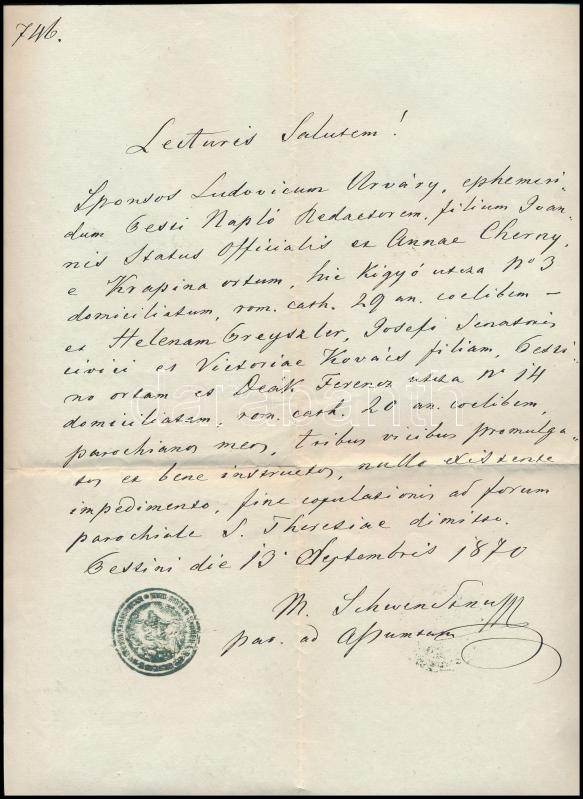 746.
Lecturis Salutem!
Sponsos Ludovicum Urváry, ephemeri-
dum Pesti Napló Redactorem, filium Joan-
nis Status Officialis et Annae Cherny,
e Krapina ortum, hic Kigyó utcza No 3
domiciliatum, rom. cath. 29 an. coelibem –
et Helenam Greyszler, Josefi Senatoris
civici et Victoriae Kovács filiam, Pesti-
no ortam et Deák Ferencz utcza No 14
domiciliatam, rom. cath. 20 an. coelibem,
parochianos meos, tribus vicibus promulga-
tos et bene instructos, nullo existente
impedimento, fine copulationis ad forum
parochiale S. Theresiae dimitto.
Pestini die 13 Septembris 1870
M.
par. ad Assumtam
darabanth